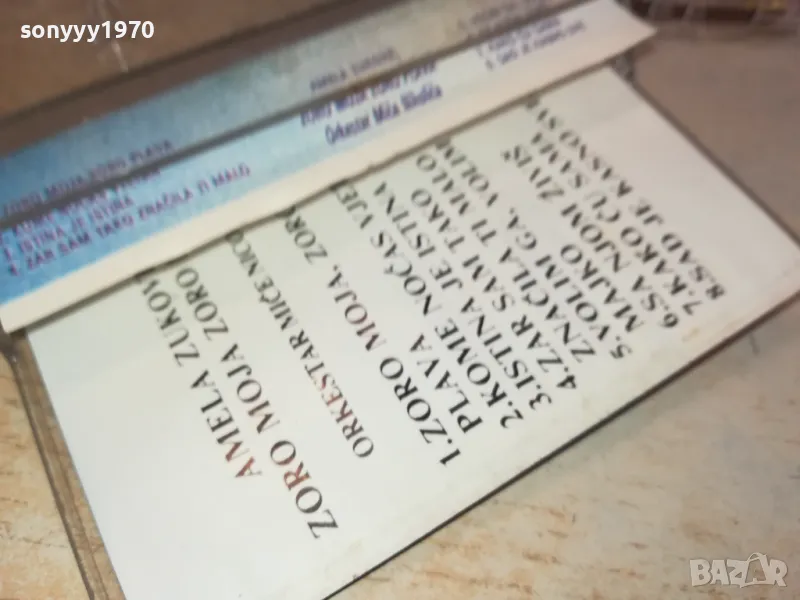 sonyyy1970
ZORO MOJA ZORO PLAVA
3. ISTINA JE ISTINA
4. ZAR SAM TAKO ZNAČILA TI MALO
Orkestar Mića Nikolića
AMELA ZUKOV
ZORO MOJA ZORO
ORKESTAR MIĆE NICO
1.ZORO MOJA, ZOR
PLAVA
2.KOME NOĆAS VJE
3.ISTINA JE ISTINA
4.ZAR SAM TAKO
ZNAČILA TI MALO
5.VOLIM GA, VOLIM
MAJKO
6.SA NJOM ŽIVIŠ
7.KAKO ĆU SAMA
8.SAD JE KASNO SV
BAZAR